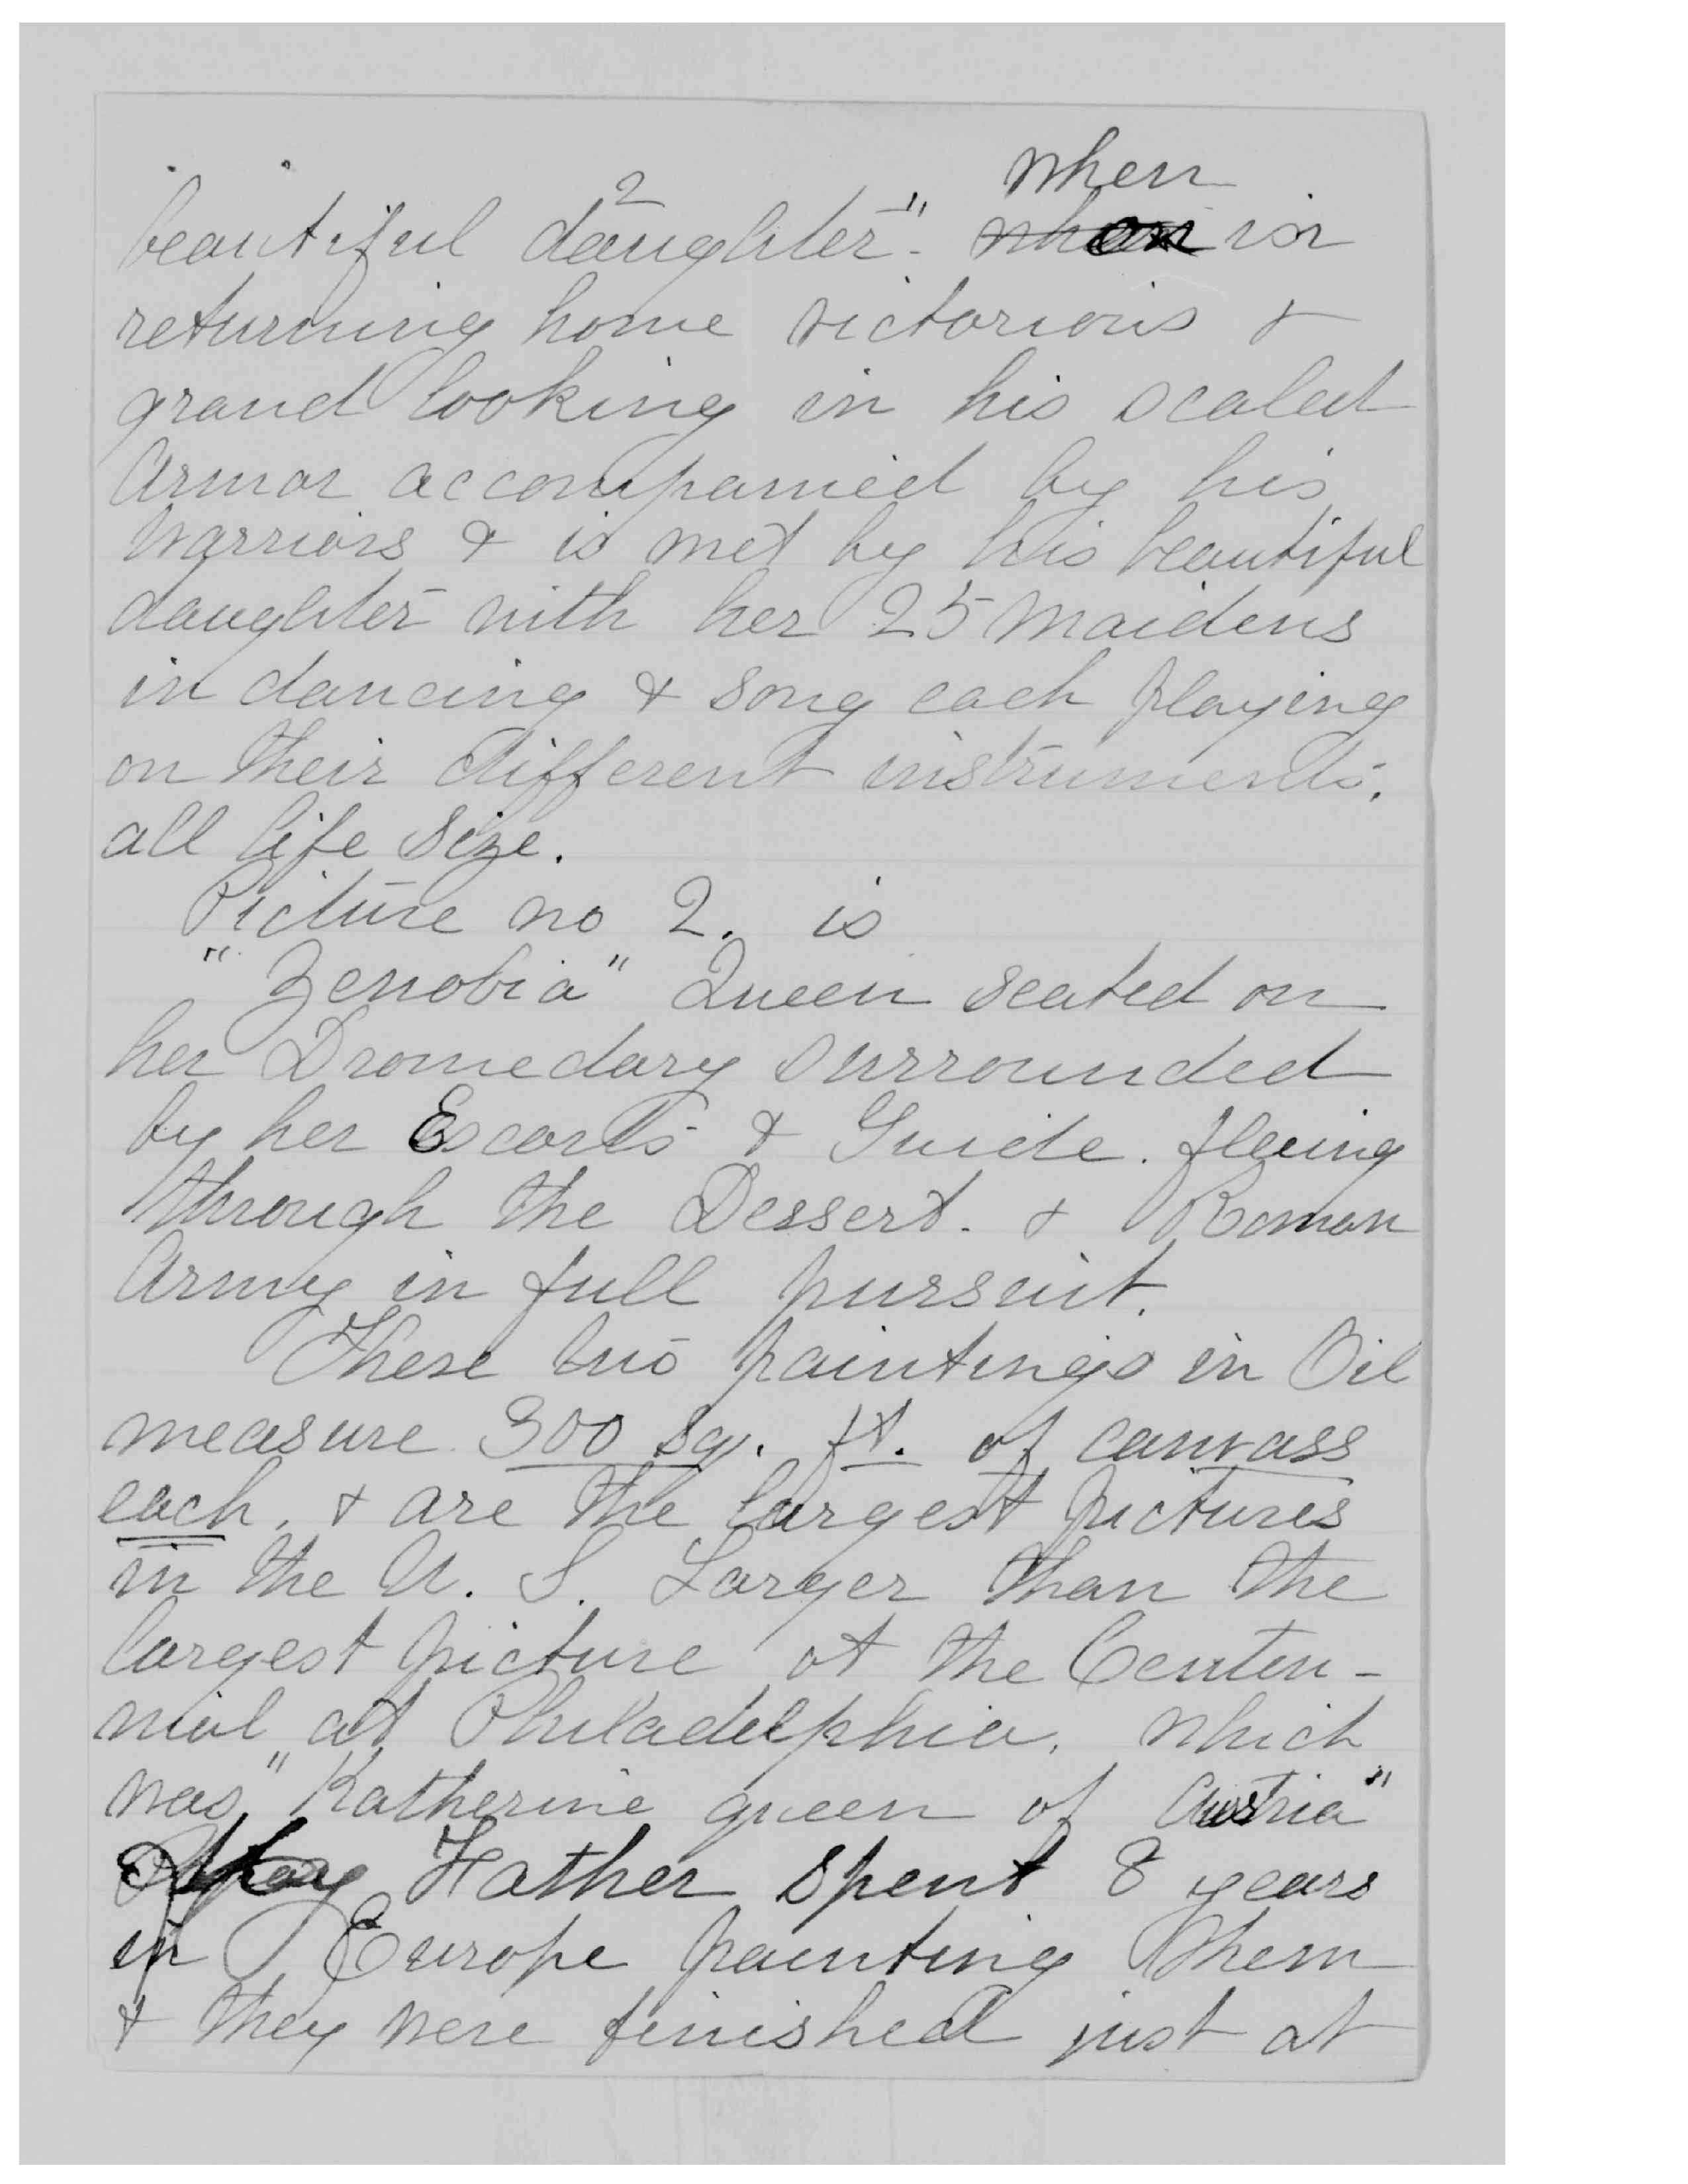 2
when
beautiful daughter" in
returning home victorious &
grand looking in his scaled
Armor accompanied by his
Warriors & is met by his beautiful
daughter with her 25 Maidens
in dancing & song each playing
on their different instruments,
all life size.
Picture no 2. is
"Zenobia" Queen seated on
her Dromedary surrounded
by her Escorts & Guide. fleeing
through the Dessert. & Roman
Army in full pursuit.
These two paintings in Oil
measure 300 sq. ft. of canvass
each, & are the largest pictures
in the U. S. Larger than the
largest picture at the Centen-
nial at Philadelphia, which
was "Katherine queen of Austria"
Father spent 8 years
in Europe painting them
& they were finished just at